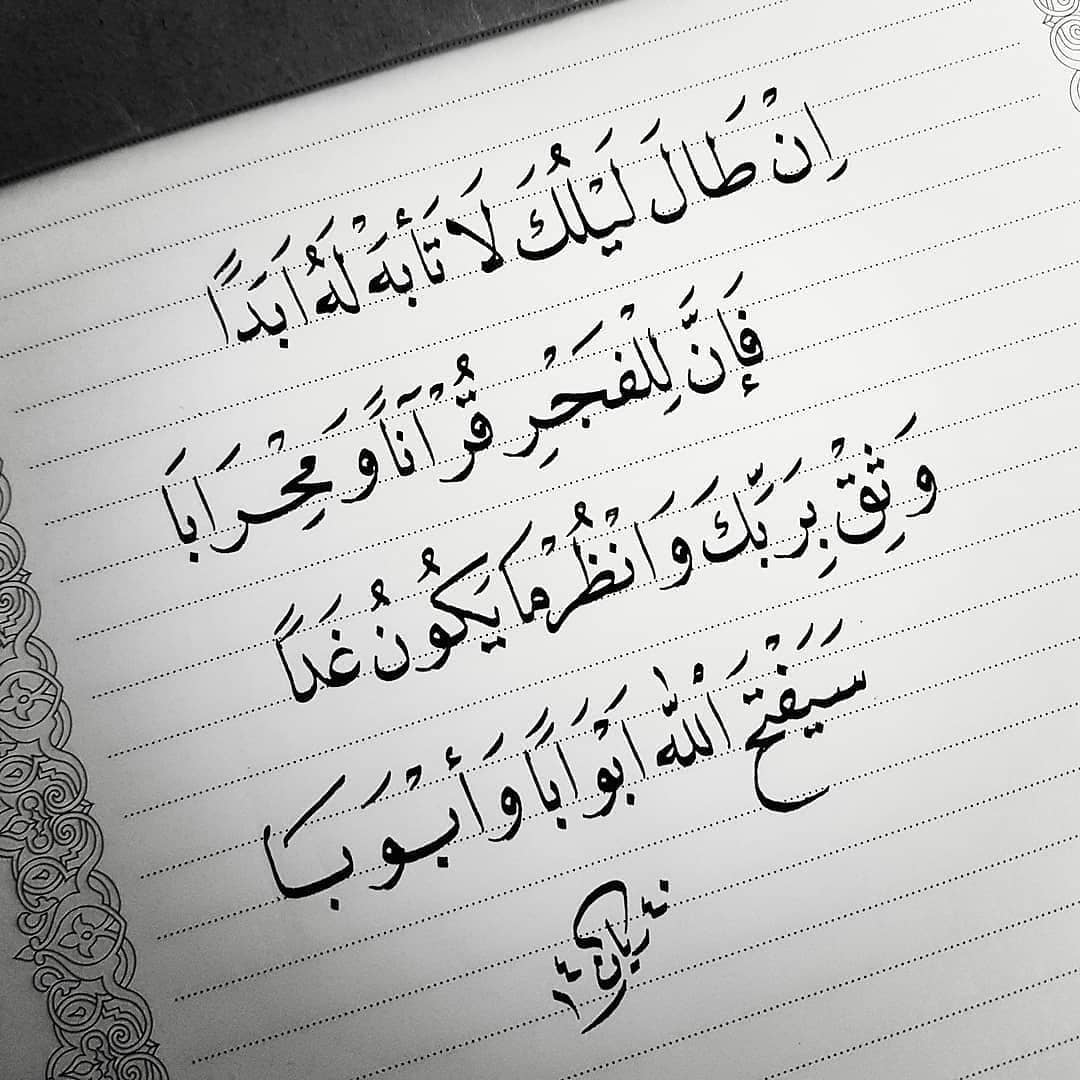 اِنْ طَالَ لَيَلُكَ لَا تَأْبَهَ لَهُ اَبَدًا
فَإِنَّ لِلْفَجْرِ قُرْآنًا وَمِحْرَابَا
وَثِقْ بِرَبِّكَ وَانْظُرْ مَا يَكُونُ غَدًا
سَيَفْتَحُ اَللّٰه اَبْوَابًا وَأَبْوَبَا
ريان